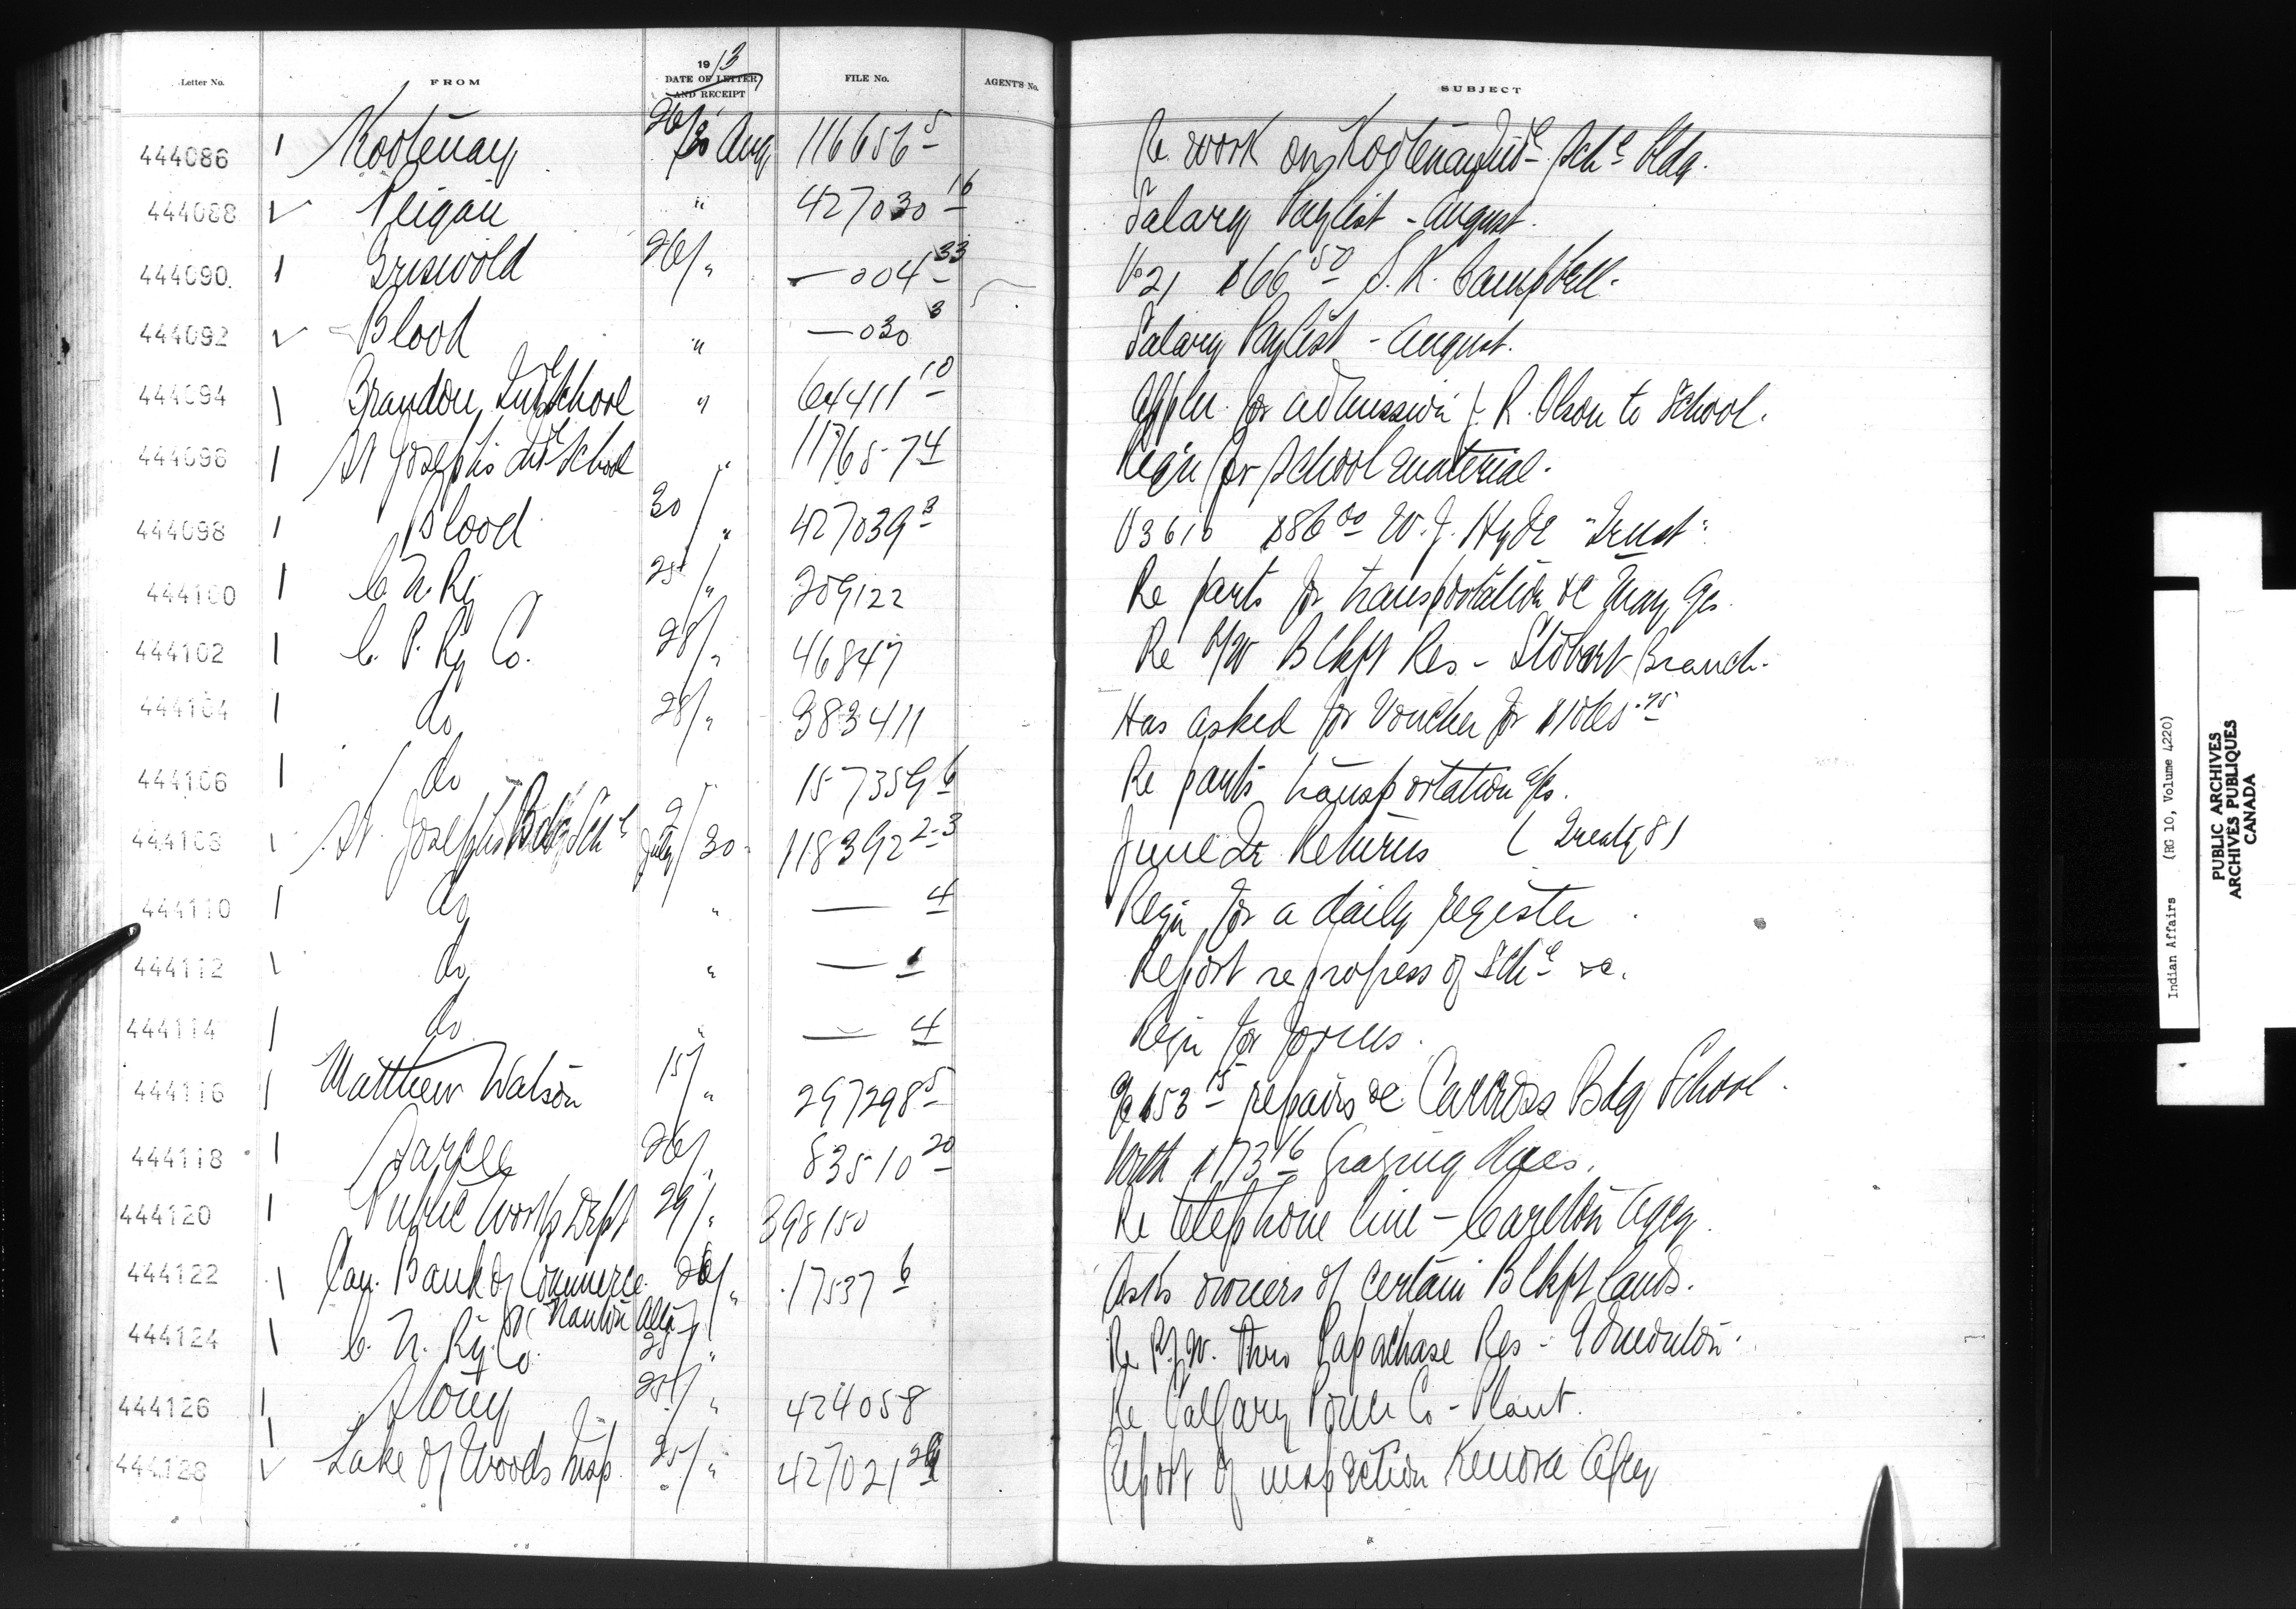 Letter No. FROM 1913 DATE OF LETTER AND RECEIPT FILE No. AGENT'S No. SUBJECT
444086 Kootenay 26/30 Aug 116656-5 Re work on Kootenay Ind. Schl Bldg.
444088 Peigan " 427030-16 Salary Paylist - August.
444090 Griswold 26/" — 004-33 Vo 21 $66 50 S. K. Campbell.
444092 Blood " — 030 3 Salary Paylist - August.
444094 Brandon Indl School " 64411-10 Appln for admission of R. Olson to School.
444096 St Joseph's Indl School " 11765-7 4 Reqn for School material.
444098 Blood 30/" 427039 3 V3610 $86 00 W. J. Hyde "Trust"
444100 C. N. Ry 25/" 209122 Re parts for transportation &c May
444102 C. P. Ry Co. 28/" 46847 Re R/W Blkft Res - Stobart Branch.
444104 do 28/" 383411 Has asked for Voucher for
444106 do " 157359 6 Re parts transportation a/cs.
444108 St. Joseph's Bdg Schl July/30 118392 2-3 June Qr Returns (Treaty 8)
444110 do " — 4 Reqn for a daily register
444112 do " — 1 Report re progress of Schl &c.
444114 do " — 4 Reqn for forms.
444116 Matthew Watson 15/" 297298-5 a/c $53 15 repairs &c Carcross Bdg School.
444118 Sarcee 26/" 83510 20 With $173 16 Grazing Dues.
444120 Public Works Dept 29/" 398150 Re telephone line - Carlton Agcy.
444122 Can. Bank of Commerce 26/" 17537 6 Asks owners of certain Blkft lands.
Nanton Alta
444124 C. N. Ry. Co. 25/" Re R/W. thro Papachase Res - Edmonton.
444126 Stony 25/" 424058 Re Calgary Power Co - Plant.
444128 Lake of Woods Insp. 25/" 427021 Report of inspection Kenora Agcy
Indian Affairs (RG 10, Volume 4220)
PUBLIC ARCHIVES
ARCHIVES PUBLIQUES
CANADA